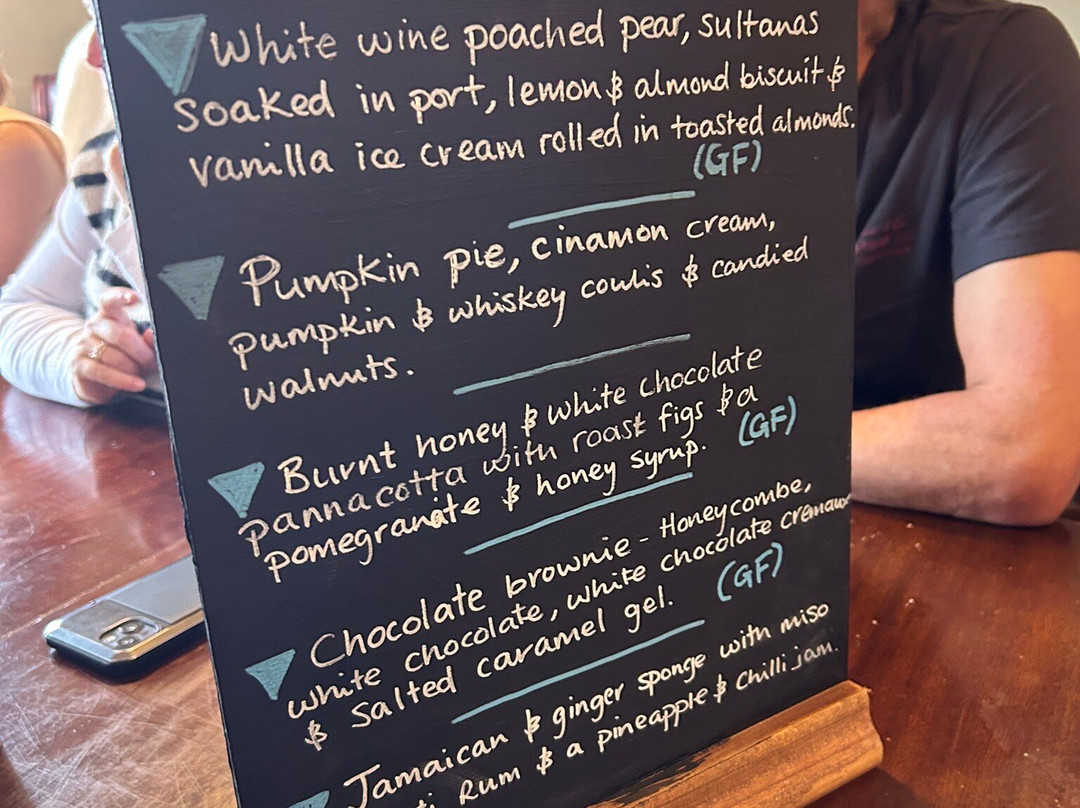 White wine poached pear, sultanas
soaked in port, lemon & almond biscuit &
vanilla ice cream rolled in toasted almonds.
(GF)
Pumpkin pie, cinamon cream,
pumpkin & whiskey coulis & candied
walnuts.
Burnt honey & white chocolate
pannacotta with roast figs & a
pomegranate & honey syrup. (GF)
Chocolate brownie - Honeycombe,
white chocolate, white chocolate
& Salted caramel gel. (GF)
Jamaican & ginger sponge with miso
Rum & a pineapple & chilli jam.